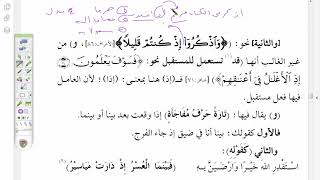 [والثانية] نحو: ﴿وَاذْكُرُوٓا۟ إِذْ كُنتُمْ قَلِيلًا﴾، و) من
غير الغالب أنها (قد) تستعمل للمستقبل نحو: ﴿فَسَوْفَ يَعْلَمُونَ
إِذِ ٱلْأَغْلَٰلُ فِىٓ أَعْنَٰقِهِمْ﴾ فـ(إذ) هنا بمعنى: (إذا)؛ لأن العامل
فيها فعل مستقبل.
(و) يقال فيها: (تَارَةً حَرْفُ مُفَاجَأَةٍ) إذا وقعت بعد بينا أو بينما.
فالأول كقولك: بينا أنا في ضيق إذ جاء الفرج.
والثاني (كَقَولِهِ):
اسْتَقْدِرِ اللهَ خَيْرًا وارْضَيَنَّ بِهِ فَبَيْنَمَا الْعُسْرُ إِذْ دَارَتْ مَيَاسِيرُ